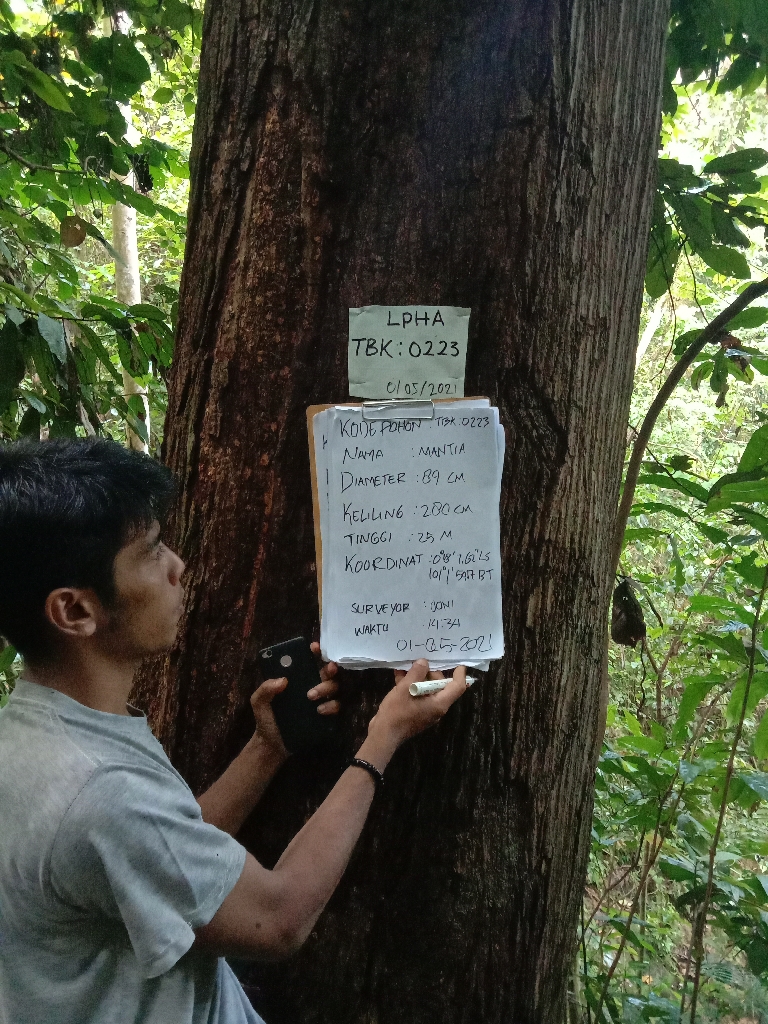 LPHA
TBK: 0223
01/05/2021
KODE POHON : TBK.0223
NAMA : MANTIA
DIAMETER : 89 CM
KELILING : 280 CM
TINGGI : 25 M
KOORDINAT
SURVEYOR : DONI
WAKTU : 14:34
01-05-2021